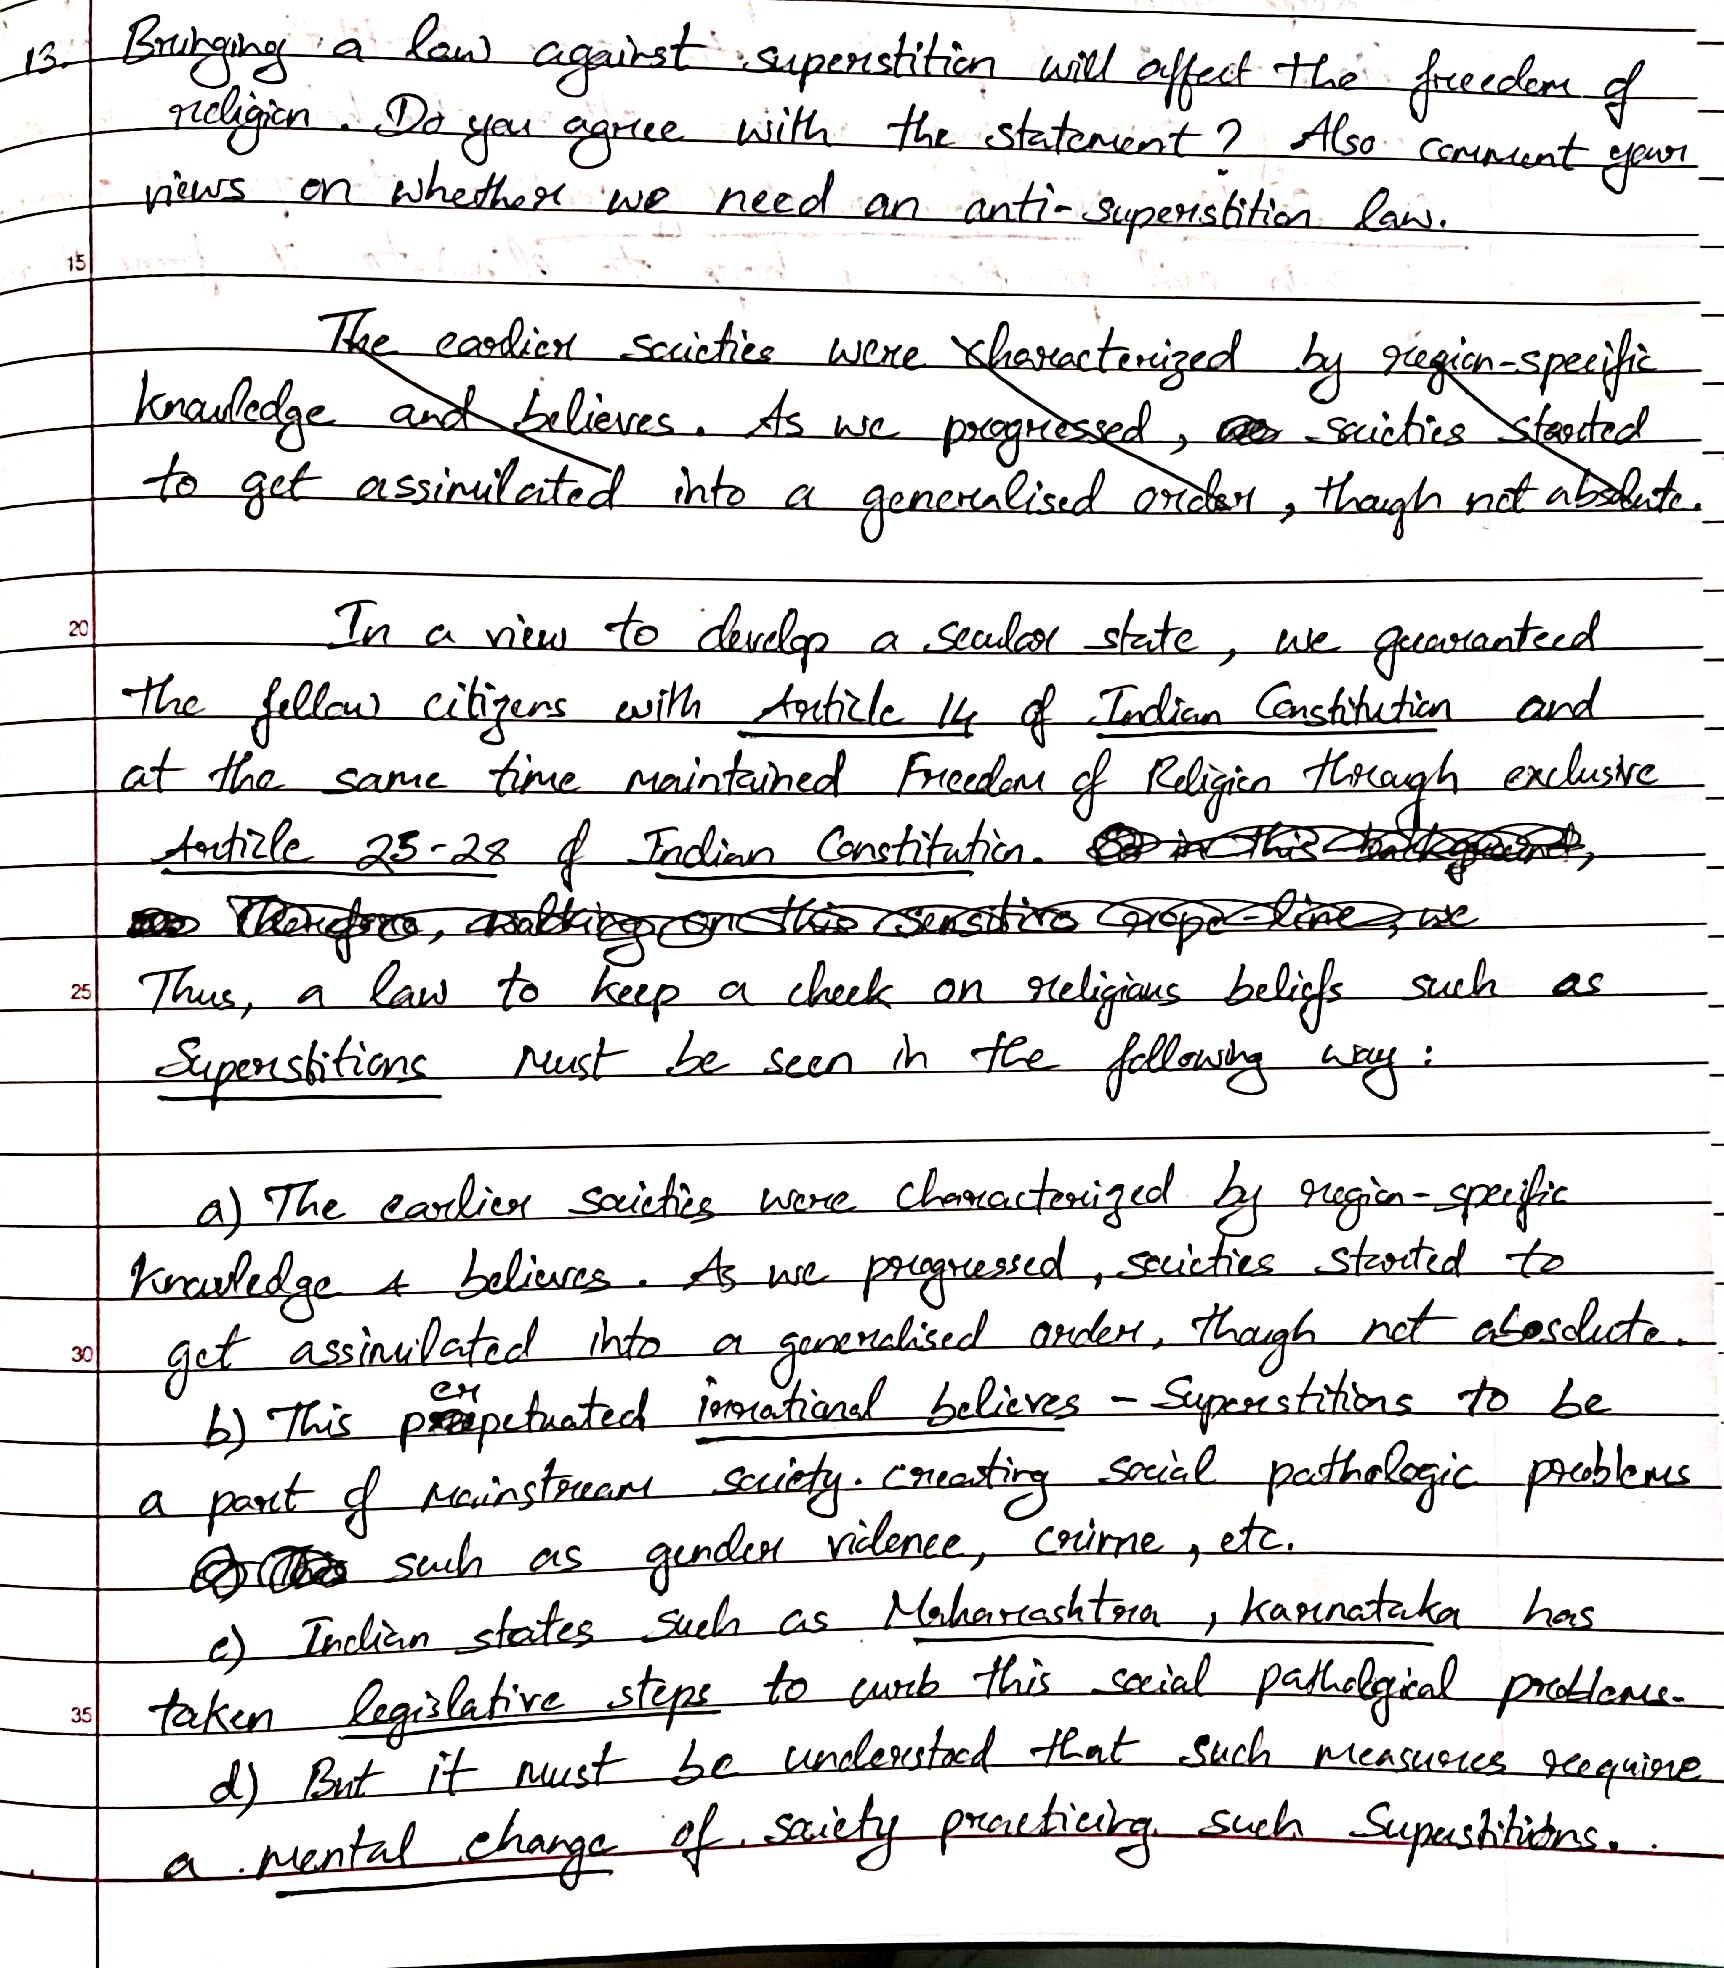 13. Bringing a law against superstition will affect the freedom of
religion. Do you agree with the statement? Also comment your
views on whether we need an anti-superstition law.
15
The earlier societies were characterized by region-specific
knowledge and believes. As we progressed, societies started
to get assimilated into a generalised order, though not absolute.
20 In a view to develop a secular state, we guaranteed
the fellow citizens with Article 14 of Indian Constitution and
at the same time maintained Freedom of Religion through exclusive
Article 25-28 of Indian Constitution. in this background,
Therefore, walking on this sensitive rope-line, we
25 Thus, a law to keep a check on religious beliefs such as
Superstitions must be seen in the following way:
a) The earlier societies were characterized by region-specific
knowledge & believes. As we progressed, societies started to
30 get assimilated into a generalised order, though not abosolute.
b) This perpetuated irrational believes - Superstitions to be
a part of mainstream society. creating social pathologic problems
such as gender violence, crime, etc.
c) Indian states such as Maharashtra, Karnataka has
35 taken legislative steps to curb this social pathological problems.
d) But it must be understood that such measures reequire
a mental change of society practicing such Superstitions.